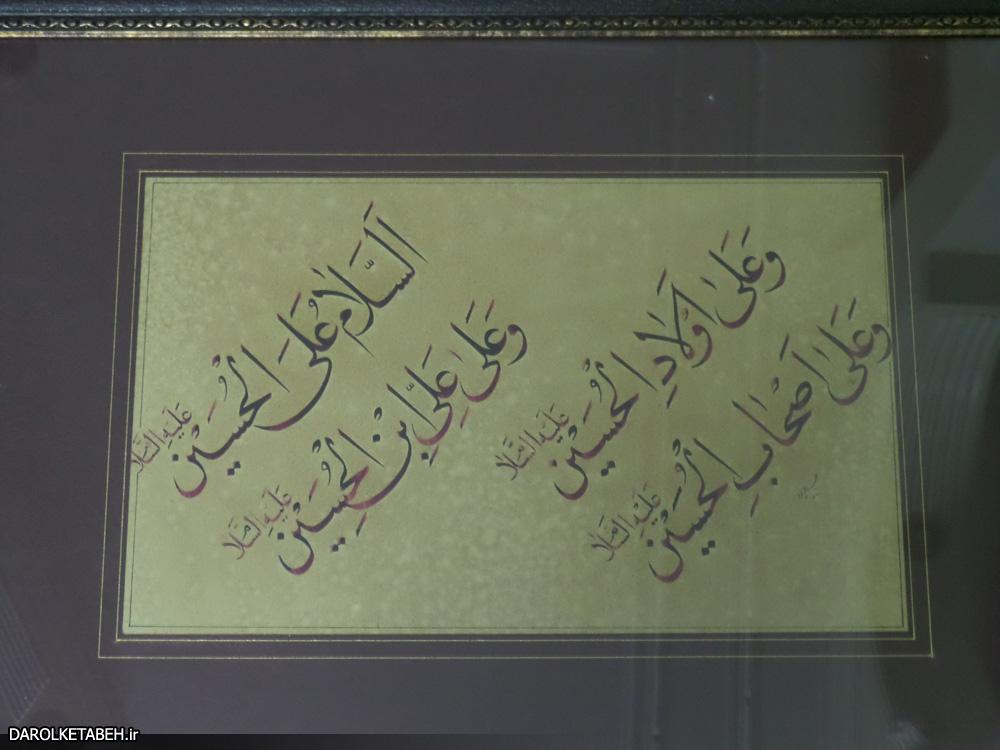 اَلسَّلامُ عَلَى الْحُسَيْن عَلَيْهِ السَّلام
وَعَلىٰ عَلِيِّ ابْنِ الْحُسَيْن عَلَيْهِ السَّلام
وَعَلىٰ اَوْلادِ الْحُسَيْن عَلَيْهِ السَّلام
وَعَلىٰ اَصْحابِ الْحُسَيْن عَلَيْهِ السَّلام
DAROLKETABEH.ir